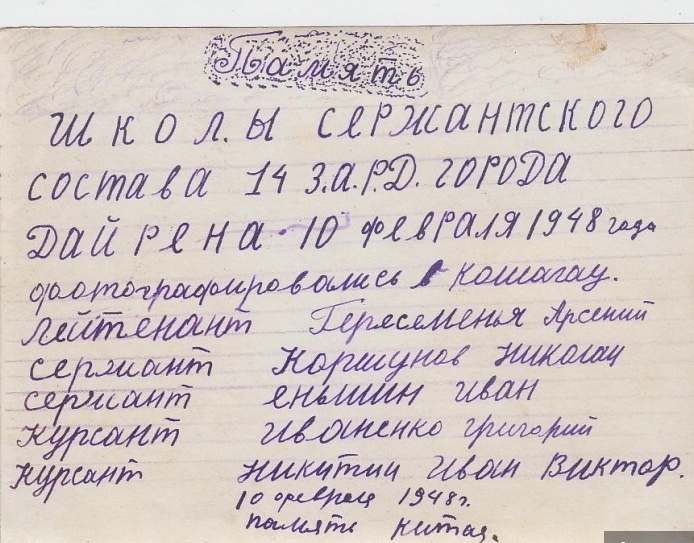 Память
ШКОЛЫ СЕРЖАНТСКОГО
СОСТАВА 14 З.А.Р.Д. ГОРОДА
ДАЙРЕНА 10 ФЕВРАЛЯ 1948 года
фотографировались в
Лейтенант Арсений
сержант Коршунов Николай
сержант еньшин Иван
Курсант Иваненко григорий
Курсант Никитин Иван Виктор.
10 февраля 1948г.
память китая.